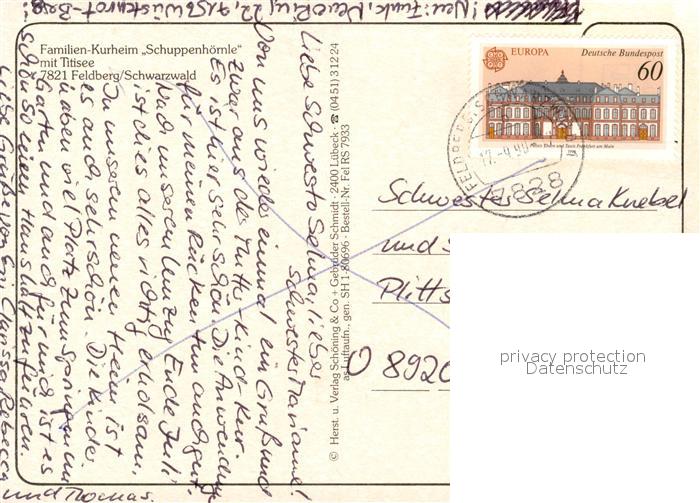 ! Neu: Funk, Neue Ring 22, 7156 Wüstenrot-
Familien-Kurheim „Schuppenhörnle"
mit Titisee
7821 Feldberg/Schwarzwald
EUROPA
Deutsche Bundespost
60
17.-9.90
7828
Liebe Schwester Selma, liebe
Schwester Marianne!
Von uns wieder einmal ein Gruß und
zwar aus der Mutter-Kind-Kur.
Es ist hier sehr schön. Die Anwendungen
für meinen Rücken tun auch gut.
Nach unserem Umzug Ende Juli
ist dies alles richtig erholsam.
In unserem neuen Heim ist
es auch sehr schön. Die Kinder
haben viel Platz zum Springen im
Garten und auch für mich ist es
schön so einen Haushalt zu führen.
Liebe Grüße von Clarissa Rebecca
und Thomas.
© Herst. u. Verlag Schöning & Co + Gebrüder Schmidt · 2400 Lübeck · ☎ (0451) 31224
as Luftaufn., gen. SH 1-80696 · Bestell-Nr. Fel RS 7933
Schwester Selma Knebel
und S
Plitts
D 8920
privacy protection
Datenschutz